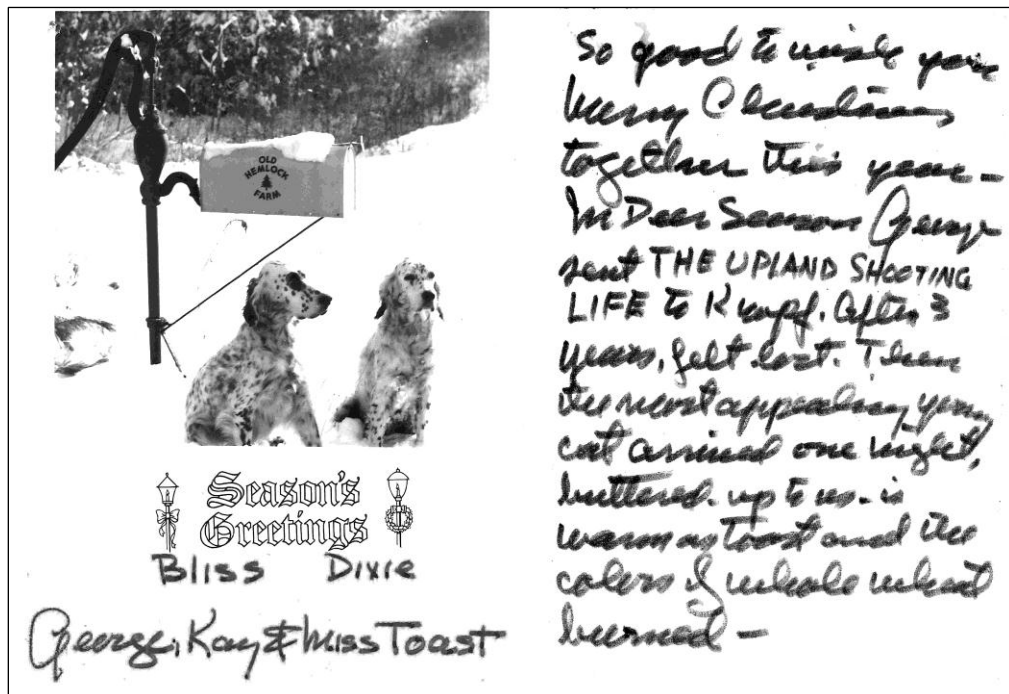 OLD
HEMLOCK
FARM
Season's
Greetings
Bliss Dixie
George, Kay & Miss Toast
So good to wish you
Merry Christmas
together this year –
In Deer Season George
sent THE UPLAND SHOOTING
LIFE to Knopf. After 3
years, felt lost. Then
the most appealing young
cat arrived one night,
buttered up to us – is
warm as toast and the
colors of whole wheat
burned –